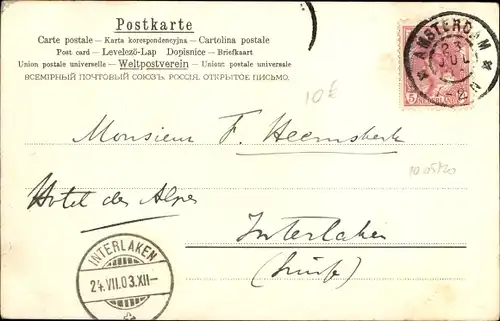 Postkarte
Carte postale – Karta korespondencyjna – Cartolina postale
Post card — Levelező-Lap Dopisnice — Briefkaart
Union postale universelle – Weltpostverein – Unione postale universale
ВСЕМІРНЫЙ ПОЧТОВЫЙ СОЮЗЪ. РОССІЯ. ОТКРЫТОЕ ПИСЬМО.
AMSTERDAM
23 JUL
5
NEDERLAND
10€
Monsieur F. Heemskerk
Hotel des Alpes
Interlaken
INTERLAKEN
24.VII.03.XII–